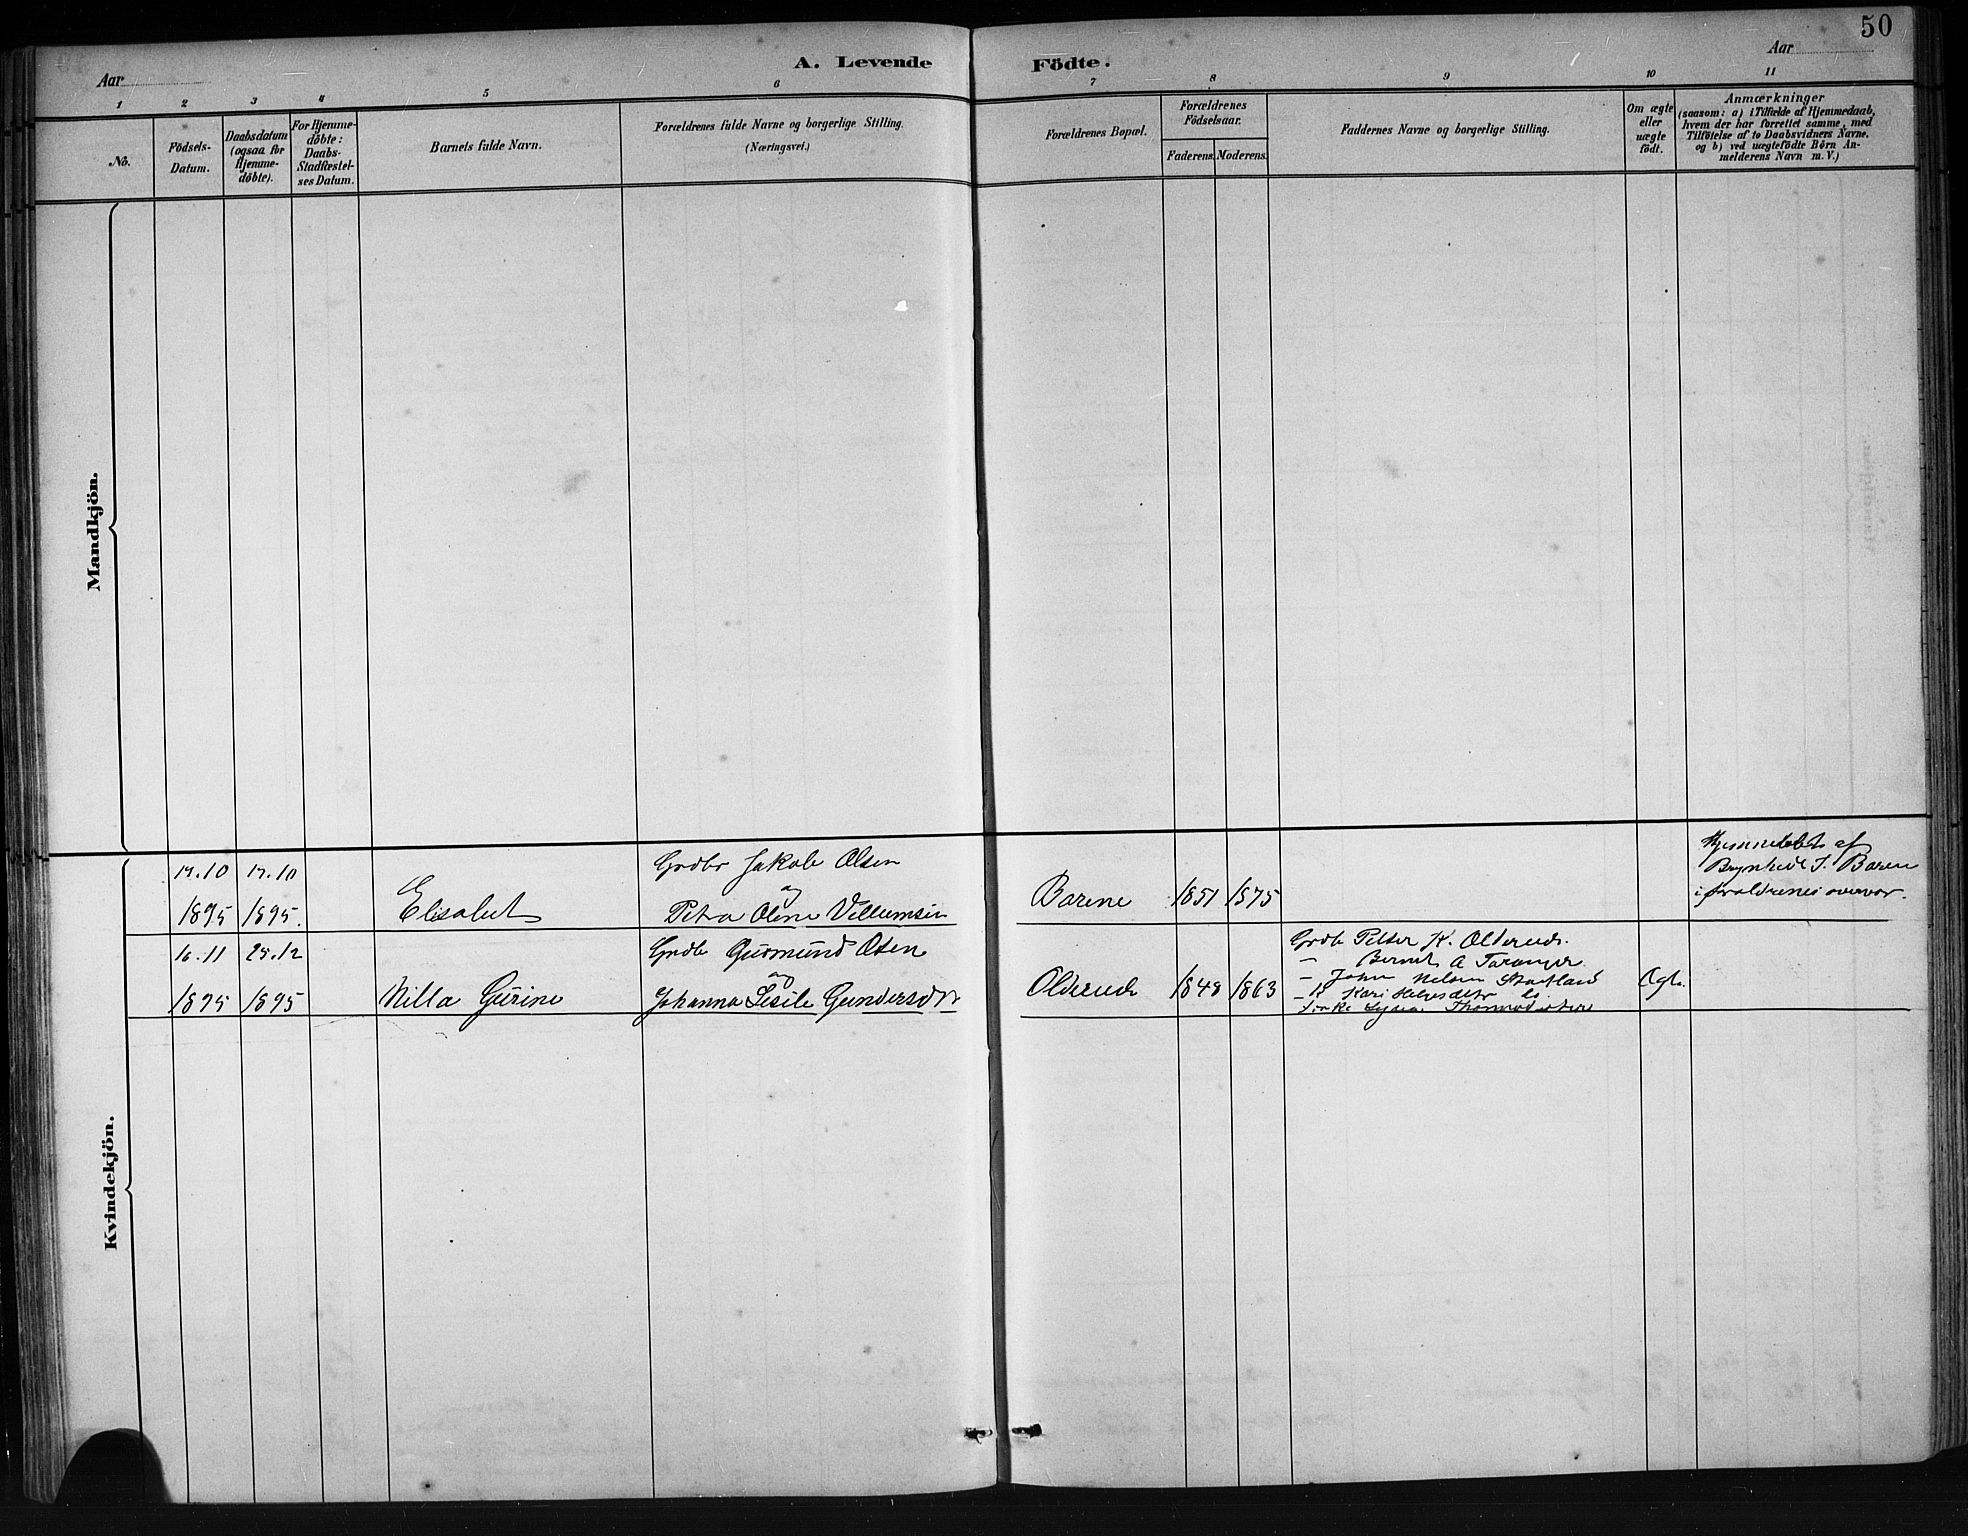 50
Aar
A. Levende
Födte.
Aar
1 2 3 4 5 6 7 8 9 10 11
No.
Födsels-
Datum.
Daabsdatum
(ogsaa for
Hjemme-
døbte).
For Hjemme-
döbte:
Daabs-
Stadfæstel-
ses Datum.
Barnets fulde Navn.
Forældrenes fulde Navne og borgerlige Stilling.
(Næringsvei.)
Forældrenes Bopæl.
Forældrenes
Födselsaar.
Faderens.
Moderens.
Faddernes Navne og borgerlige Stilling.
Om ægte
eller
uægte
født.
Anmærkninger
(saasom: a) i Tilfælde af Hjemmedaab,
hvem der har forrettet samme, med
Tilføielse af to Daabsvidners Navne.
og b) ved uægtefödte Börn An-
melderens Navn m. V.)
Mandkjön.
Kvindekjön.
17.10 17.10
1895 1895.
Elisabet
Grdbr Jakob Olsen
og
Petra Oline Villumsen
Barene
1851 1875
af
J. Barene
i forældrenes overvær.
16.11 25.12
1895 1895
Nilla Gurine
Grdb Gudmund Olsen
og
Johanna Sesile Gundersdtr
Olderende
1848 1863
Grdb Petter K. Olderende.
- Bernt A Taranger.
- John Nelsen
- K Kari Helgesdtr do
Lydia
Ægte.